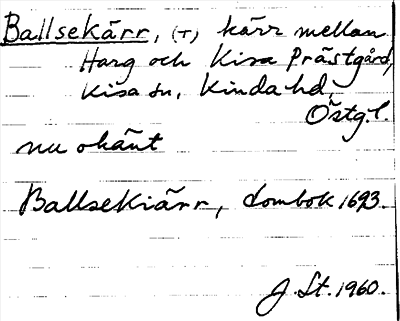 Ballsekärr, (T) kärr mellan
Harg och Kisa Prästgård,
Kisa sn, Kinda hd,
Östg.l.
nu okänt
Ballsekiärr, dombok 1693.
J. St. 1960.